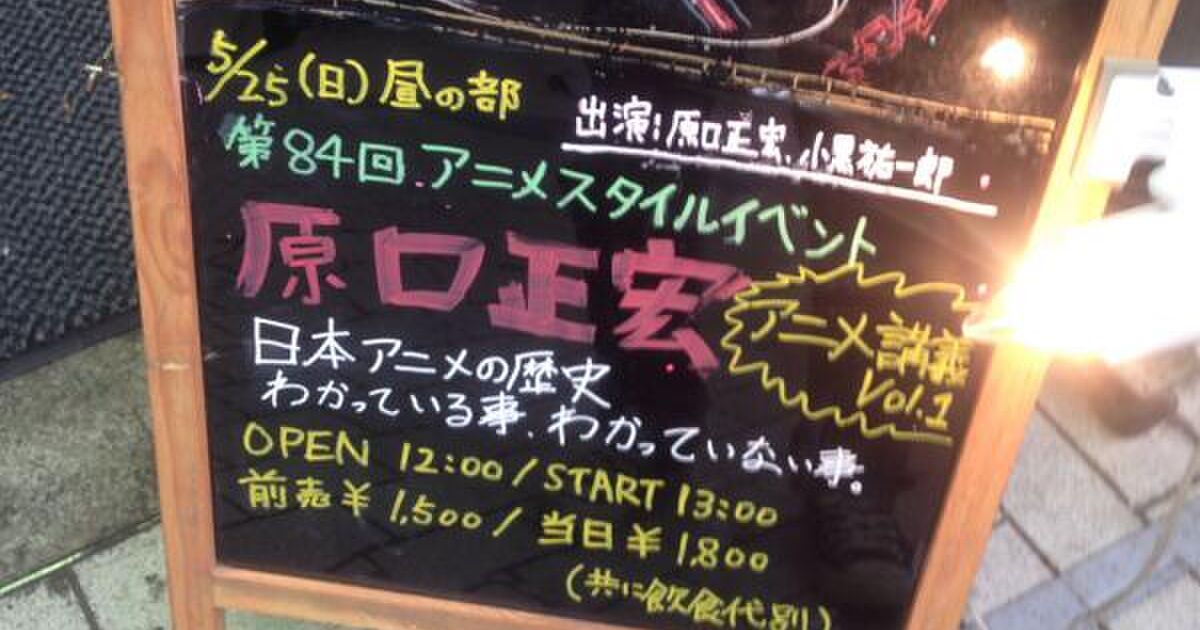 5/25(日)昼の部
出演:原口正宏、小黒祐一郎
第84回 アニメスタイルイベント
原口正宏
アニメ講義
Vol.1
日本アニメの歴史
わかっている事、わかっていない事。
OPEN 12:00/START 13:00
前売¥1,500/当日¥1,800
(共に飲食代別)